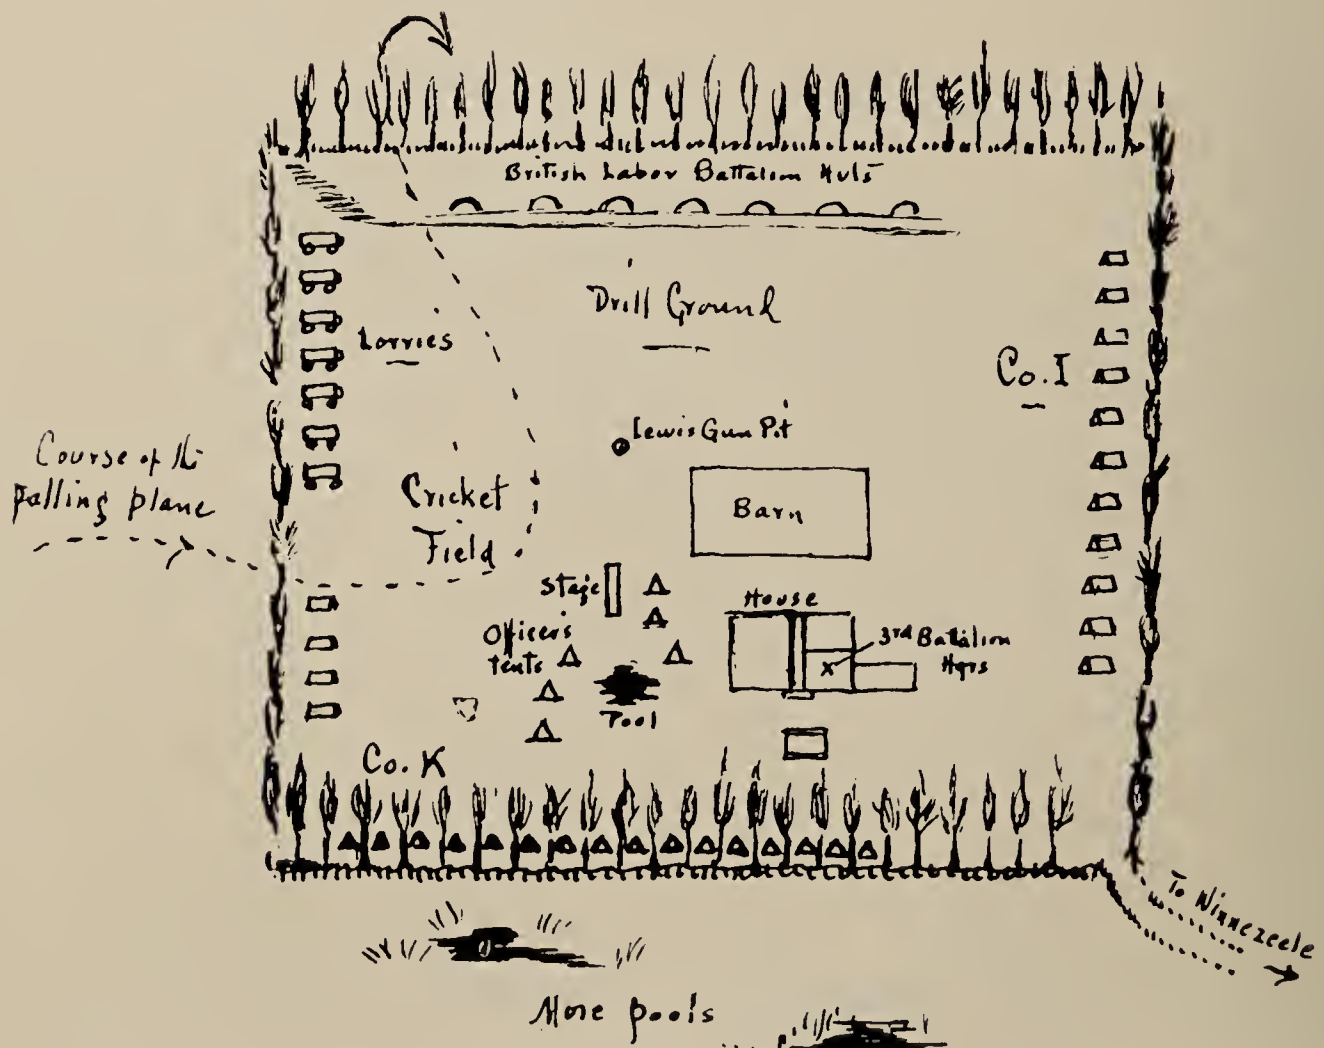 British Labor Battalion Huts
Drill Ground
Lorries
Co. I
Lewis Gun Pit
Course of the
falling plane
Cricket
Field
Barn
Stage
House
Officers
tents
3rd Battalion
Hqrs
x
Pool
Co. K
To Winnezeele
More pools